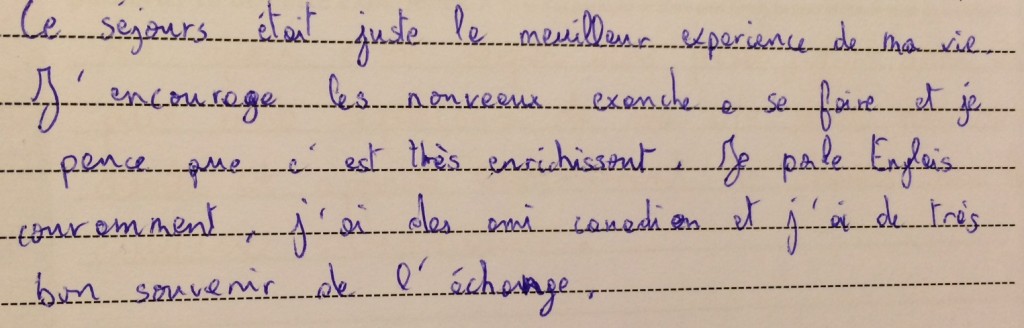 Ce séjours était juste le meuilleur experience de ma vie.
J'encourage les nouveaux exanche a se faire et je
pence que c'est thès enrichissant. Je parle Englais
couramment, j'ai des ami canadien et j'ai de très
bon souvenir de l'échange.